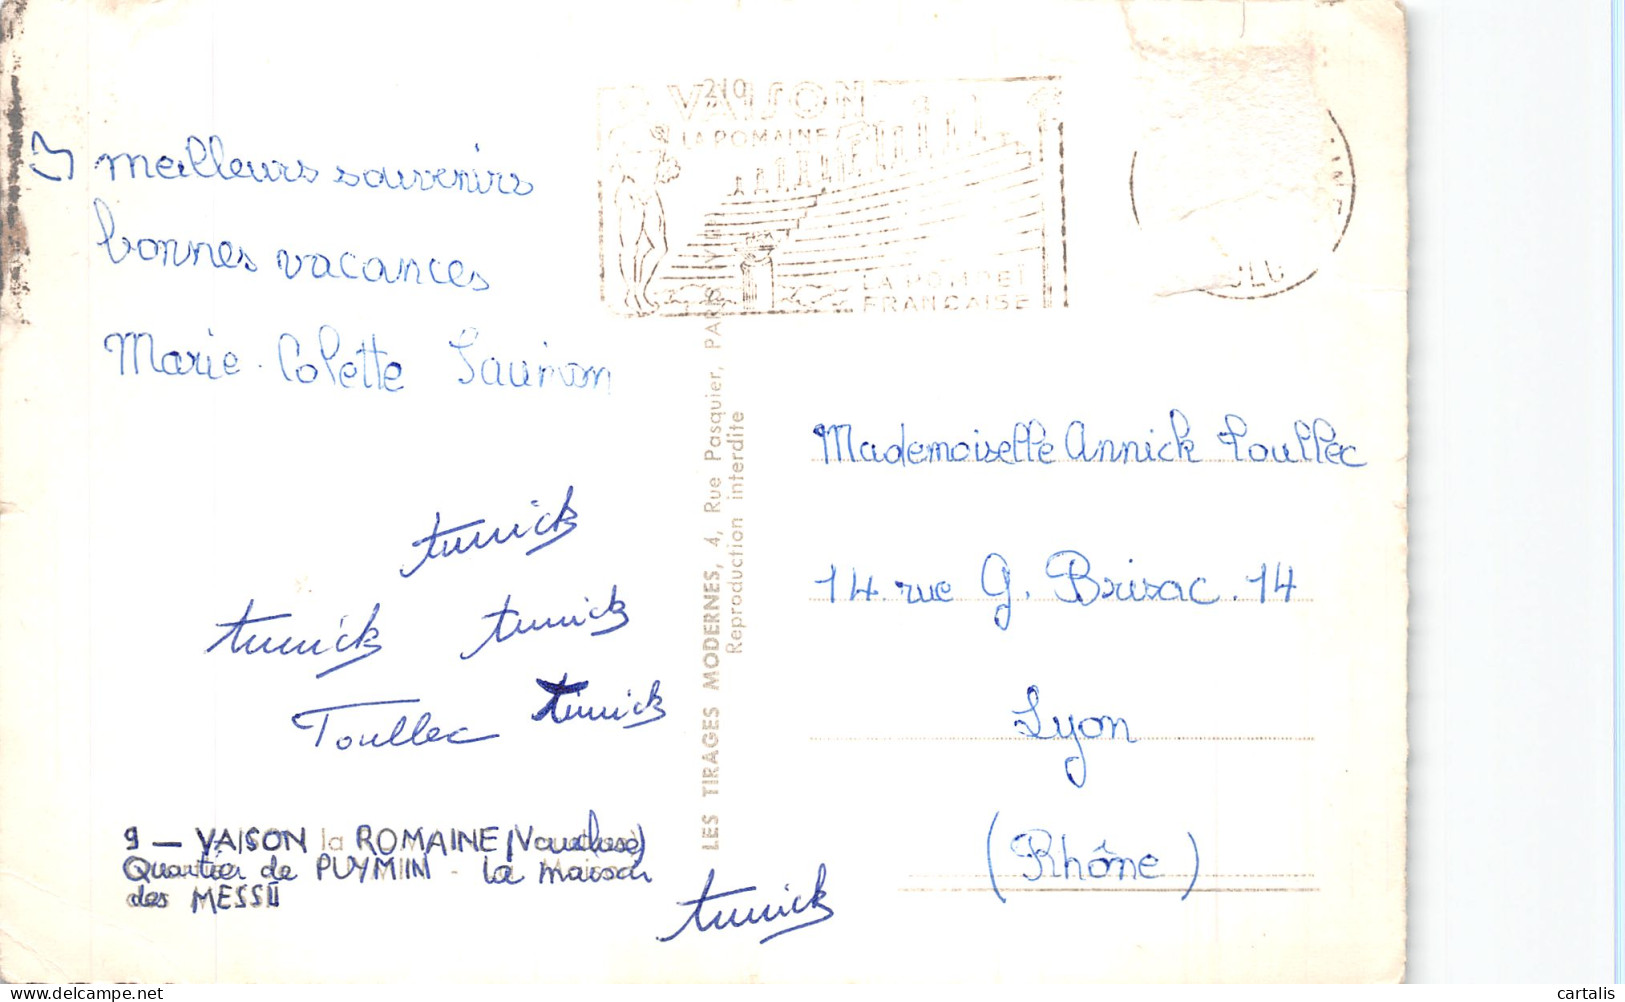 210
VAISON
LA ROMAINE
LA POMPEI
FRANCAISE
meilleurs souvenirs
bonnes vacances
Marie-Colette
Mademoiselle Annick Toullec
14 rue G. Brisac. 14
Lyon
(Rhône)
Annick
Annick
Annick
Annick
Toullec
Annick
LES TIRAGES MODERNES, 4, Rue Pasquier, PARIS
Reproduction interdite
9 — VAISON la ROMAINE (Vaucluse)
Quartier de PUYMIN - La Maison
des MESSII
cartalis